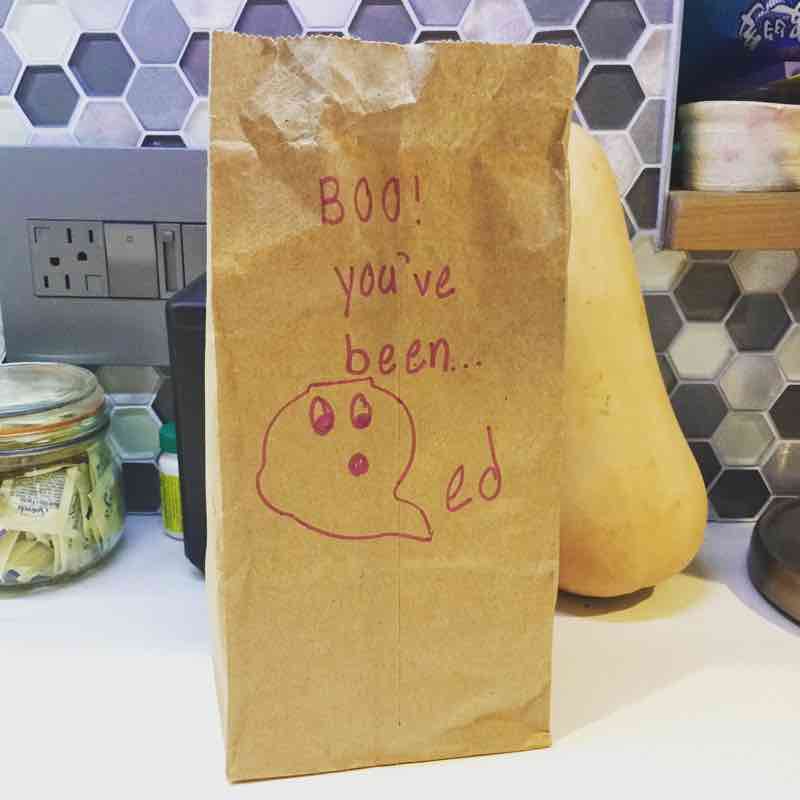 BOO!
you've
been...
ed